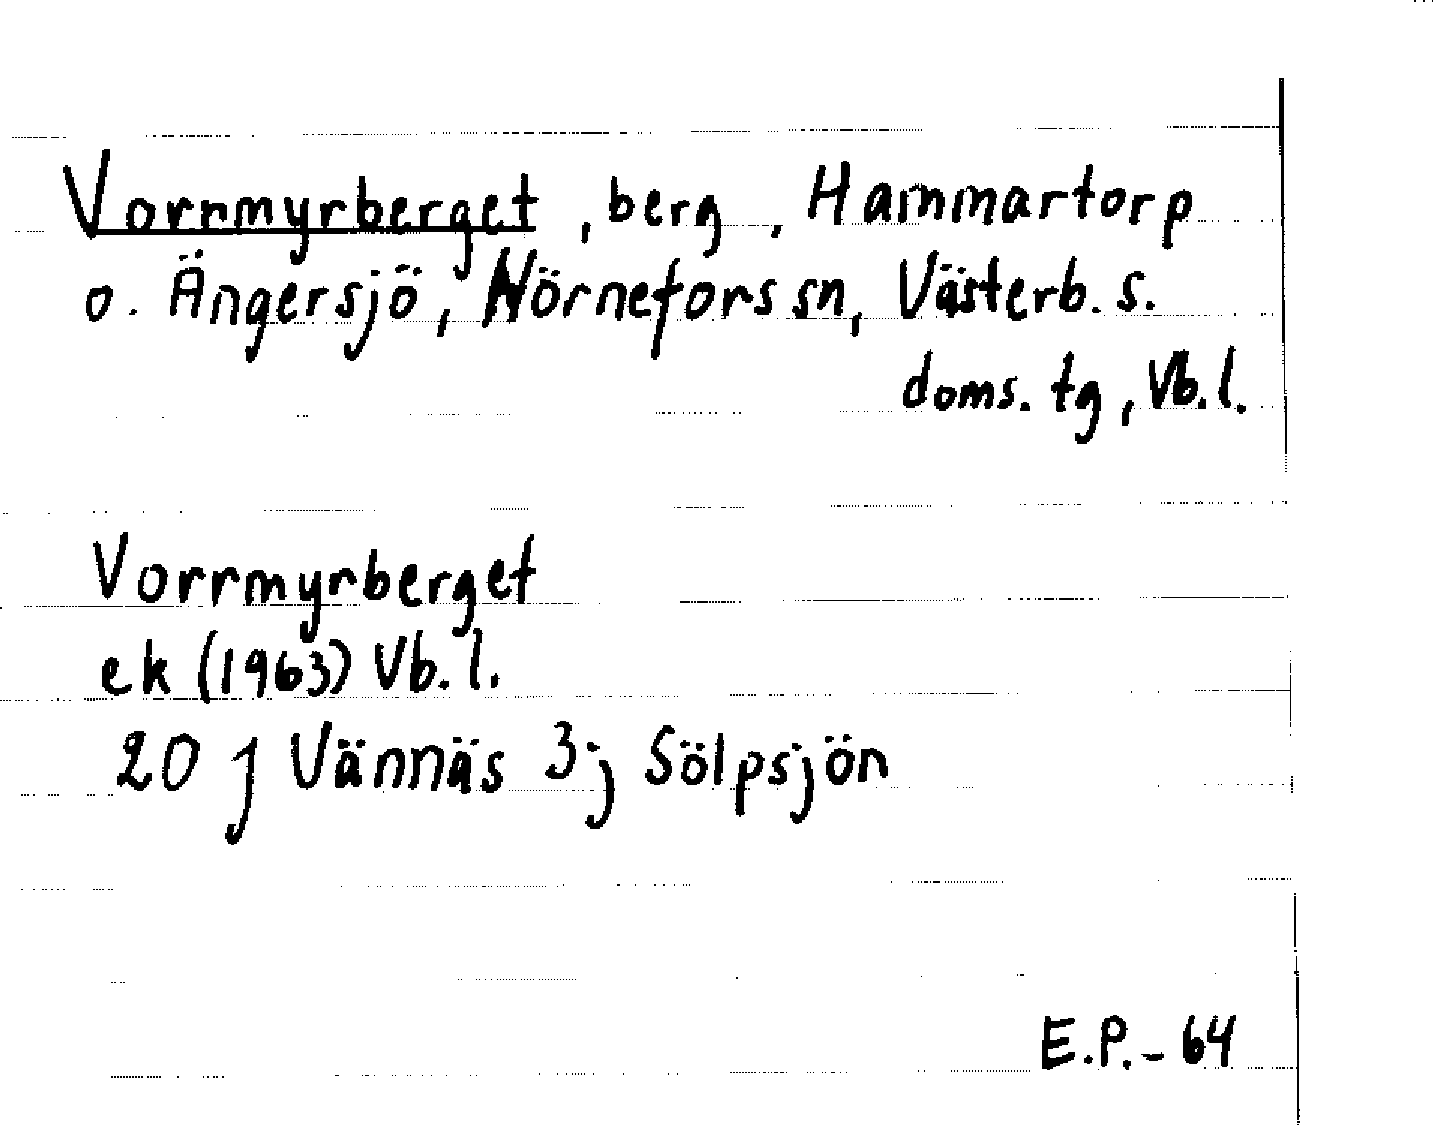 Vorrmyrberget, berg, Hammartorp
o. Ängersjö, Hörnefors sn, Västerb. s.
doms. tg, Vb. l.
Vorrmyrberget
ek (1963) Vb. l.
20 J Vännäs 3j Sölpsjön
E.P. - 64